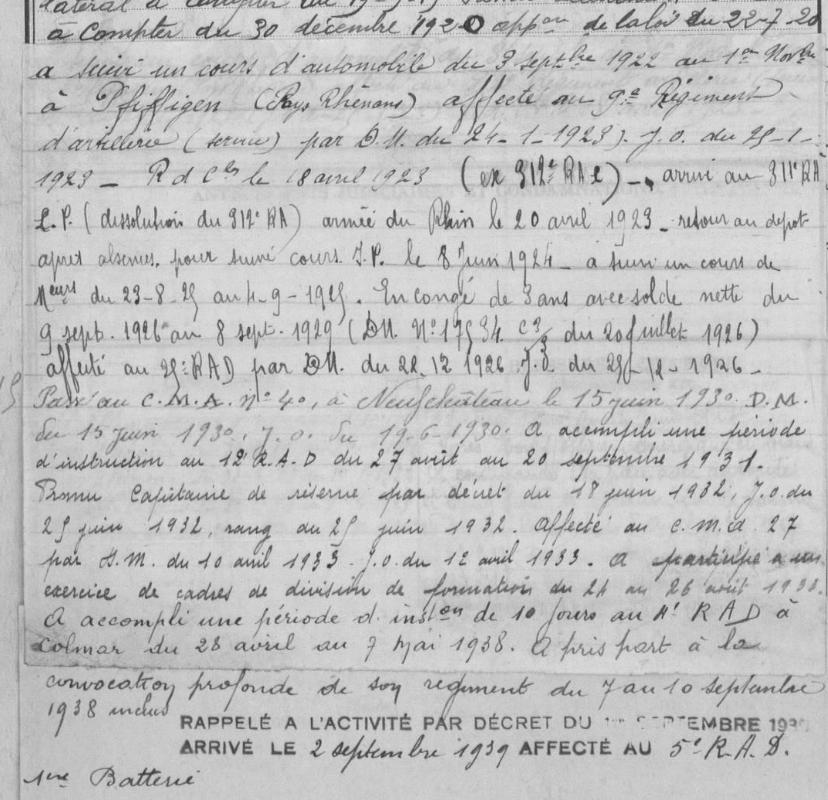 à compter du 30 décembre 1920 appon de la loi du 22-7-20
a suivi un cours d'automobile du 3 septbre 1922 au 1er Novbre
à Pfiffligen (Pays Rhénans) affecté au 9e Régiment
d'artillerie (service) par D.M. du 24-1-1923). J.O. du 25-1-
1923 - R d C les le 18 avril 1923 (ex 312e RAL) - arrivé au 311e RA
L.P. (dissolution du 312e RA) armée du Rhin le 20 avril 1923 - retour au dépot
apret absences, pour suivé cours I.P. le 8 Juin 1924 - a suivi un cours de
du 23-8-25 au 4-9-1925. En congé de 3 ans avec solde nette du
9 sept. 1926 au 8 sept. 1929 (DM. N° 17534 du 20 Juillet 1926)
affecté au 25e RAD par DM. du 22.12 1926 J.O. du 25-12-1926 -
Passé au C.M.A. n° 40, à Neufchâteau le 15 juin 1930. D.M.
du 15 Juin 1930. J.O. du 19-6-1930. A acompli une période
d'instruction au 12e R.A.D du 27 août au 20 septembre 1931.
Promu Capitaine de réserve par décret du 18 juin 1932, J.O. du
25 juin 1932, rang du 25 juin 1932. Affecté au C.M.A. 27
par D.M. du 10 avril 1933 J.O. du 12 avril 1933. A participé à un
exercice de cadres de division de formation du 24 au 26 août 1938.
A accompli une période d'inston de 10 jours au RAD à
Colmar du 28 avril au 7 Mai 1938. A pris part à la
convocation profonde de son regiment du 7 au 10 septembre
1938 inclus
RAPPELÉ A L'ACTIVITÉ PAR DÉCRET DU 1er SEPTEMBRE 1939
ARRIVÉ LE 2 septembre 1939 AFFECTÉ AU 5e R.A.D.
1ere Batterie